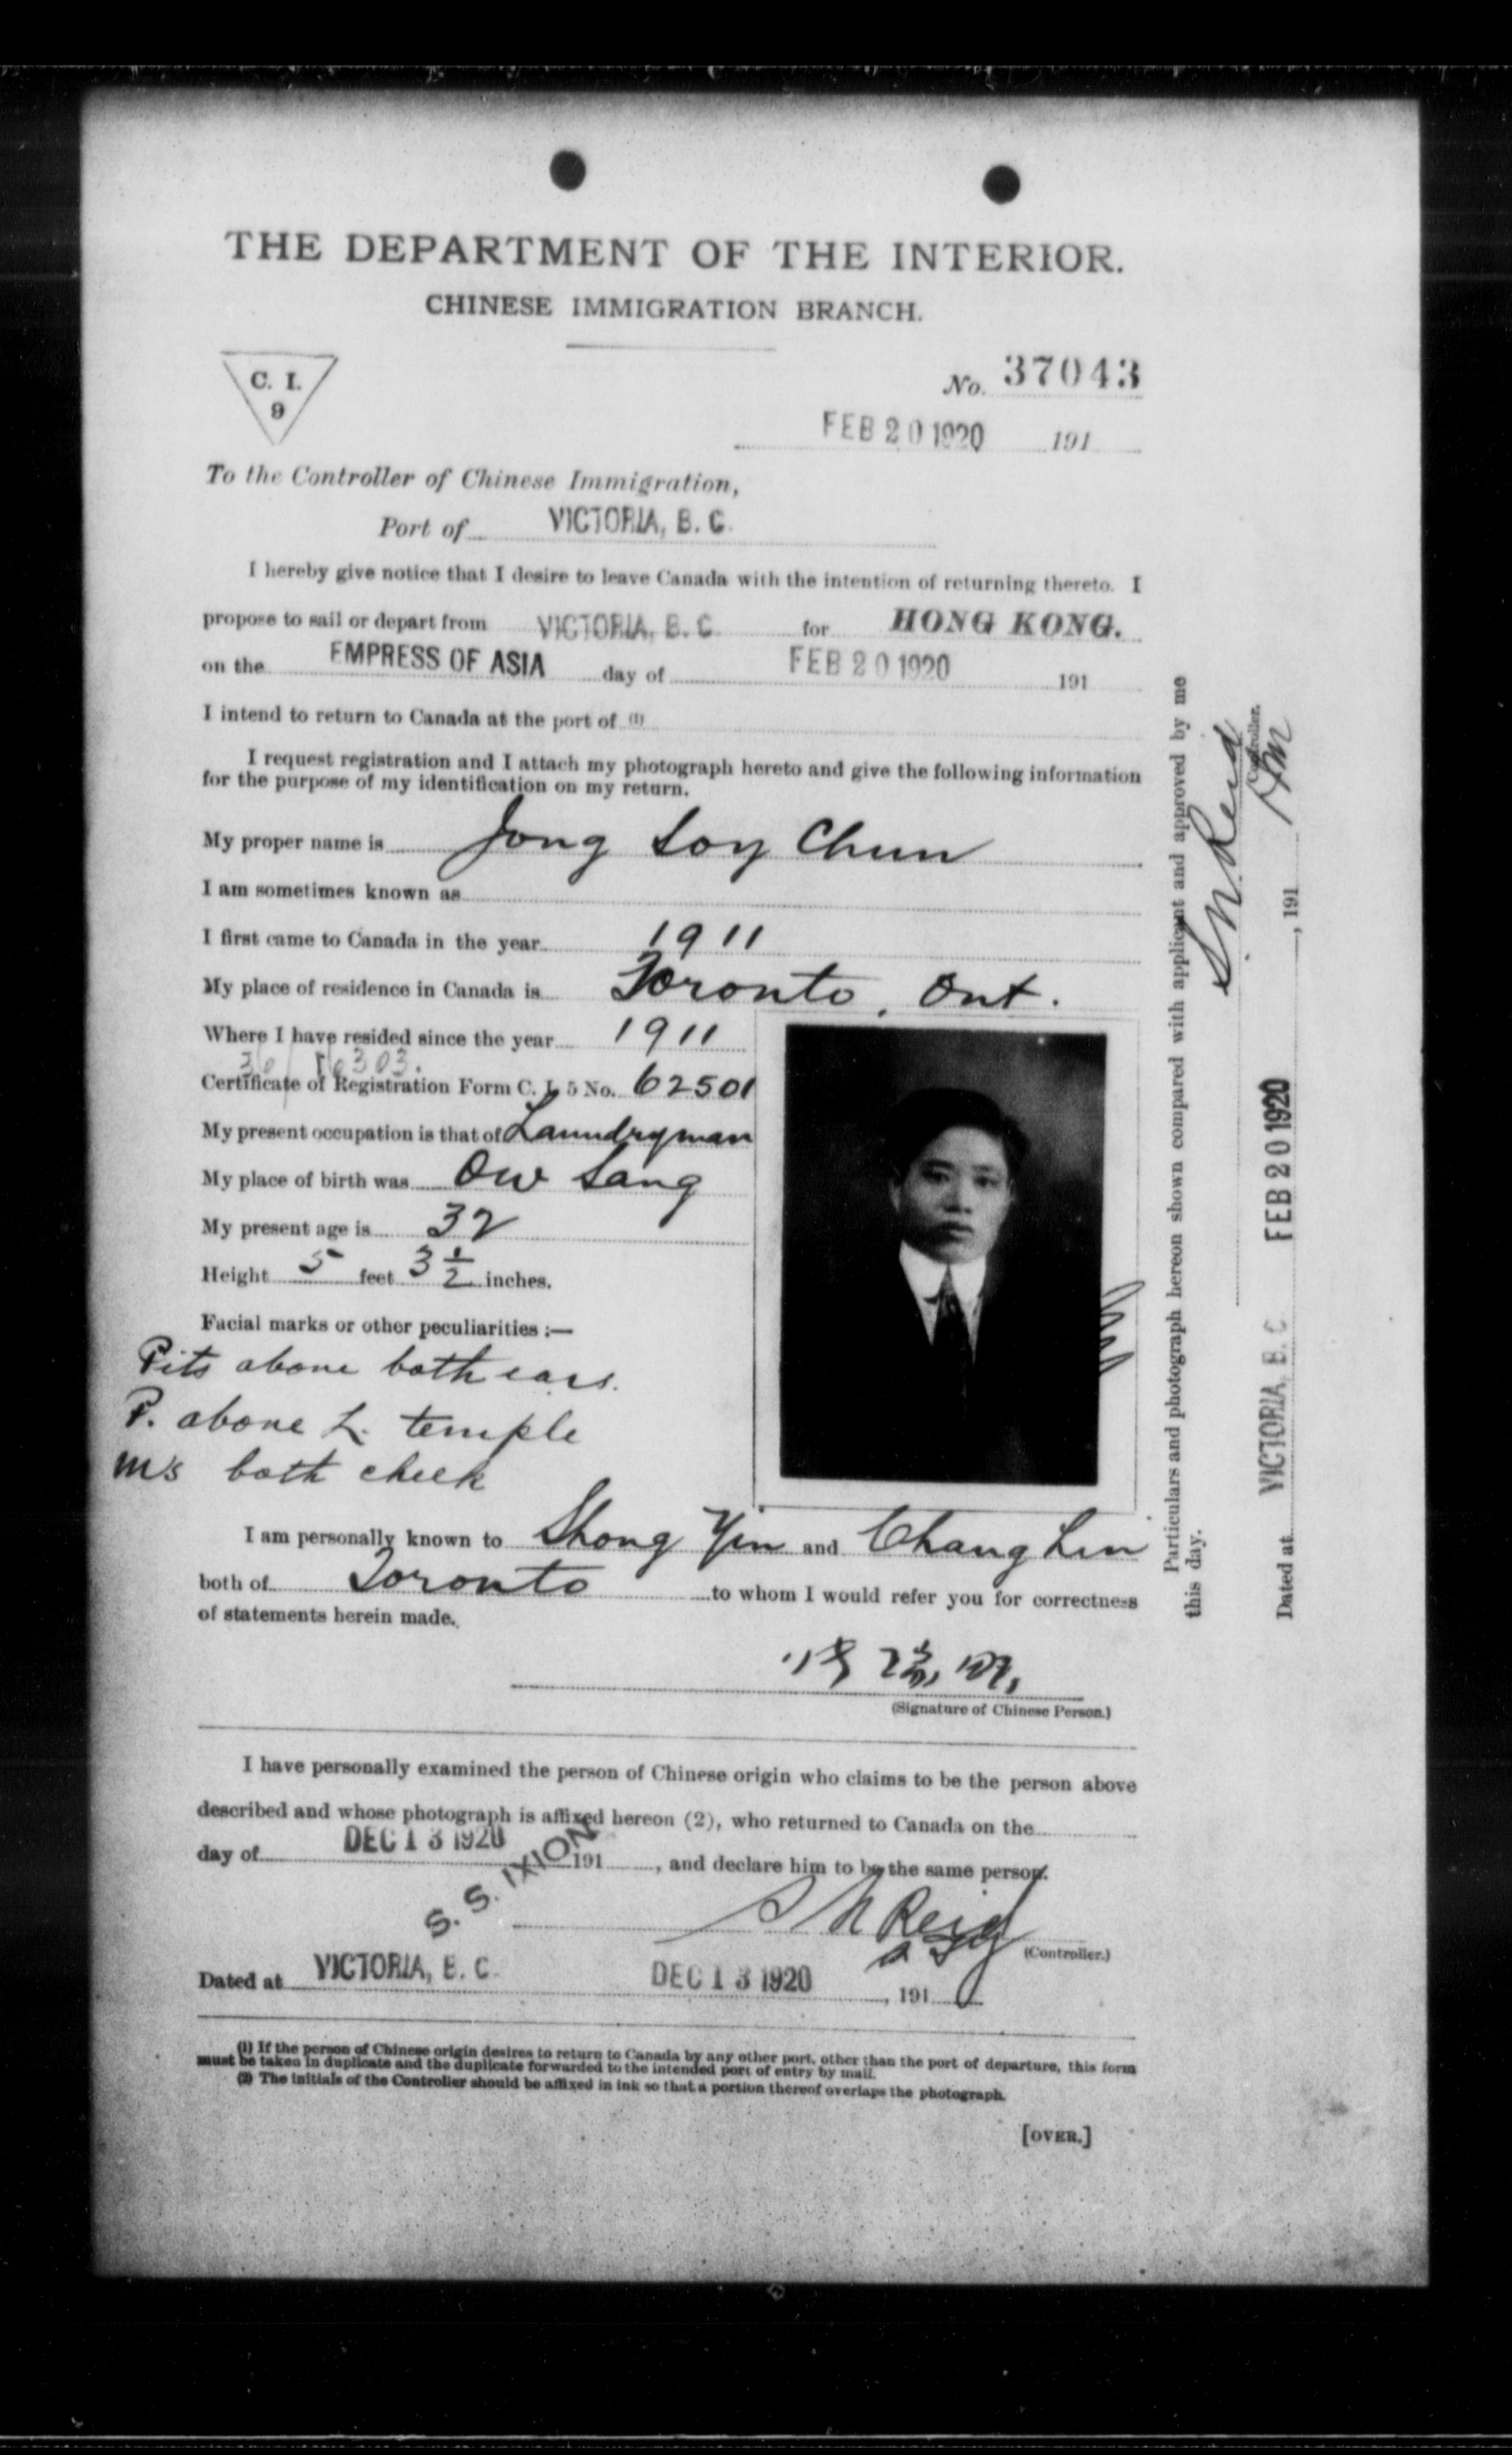 THE DEPARTMENT OF THE INTERIOR.
CHINESE IMMIGRATION BRANCH.
C. I.
9
No. 37043
FEB 20 1920 191
To the Controller of Chinese Immigration,
Port of VICTORIA, B. C.
I hereby give notice that I desire to leave Canada with the intention of returning thereto. I
propose to sail or depart from VICTORIA, B. C. for HONG KONG.
on the EMPRESS OF ASIA day of FEB 20 1920 191
I intend to return to Canada at the port of (1)
I request registration and I attach my photograph hereto and give the following information
for the purpose of my identification on my return.
My proper name is Jong Soy Chun
I am sometimes known as
I first came to Canada in the year 1911
My place of residence in Canada is Toronto, Ont.
Where I have resided since the year 1911
Certificate of Registration Form C. I. 5 No. 62501
My present occupation is that of Laundryman
My place of birth was Ow Sang
My present age is 32
Height 5 feet 3 1/2 inches.
Facial marks or other peculiarities :—
Pits above both ears.
P. above L. temple
Ms both cheek
I am personally known to Shong Yin and Chang Lin
both of Toronto to whom I would refer you for correctness
of statements herein made.
(Signature of Chinese Person.)
I have personally examined the person of Chinese origin who claims to be the person above
described and whose photograph is affixed hereon (2), who returned to Canada on the
day of DEC 13 1920 191 , and declare him to be the same person.
S. S. IXION
S N Reid
(Controller.)
Dated at VICTORIA, B. C. DEC 13 1920 , 191
(1) If the person of Chinese origin desires to return to Canada by any other port, other than the port of departure, this form
must be taken in duplicate and the duplicate forwarded to the intended port of entry by mail.
(2) The initials of the Controller should be affixed in ink so that a portion thereof overlaps the photograph.
[OVER.]
Particulars and photograph hereon shown compared with applicant and approved by me
this day.
S N. Reid
Controller.
Dated at VICTORIA, B. C FEB 20 1920 , 191